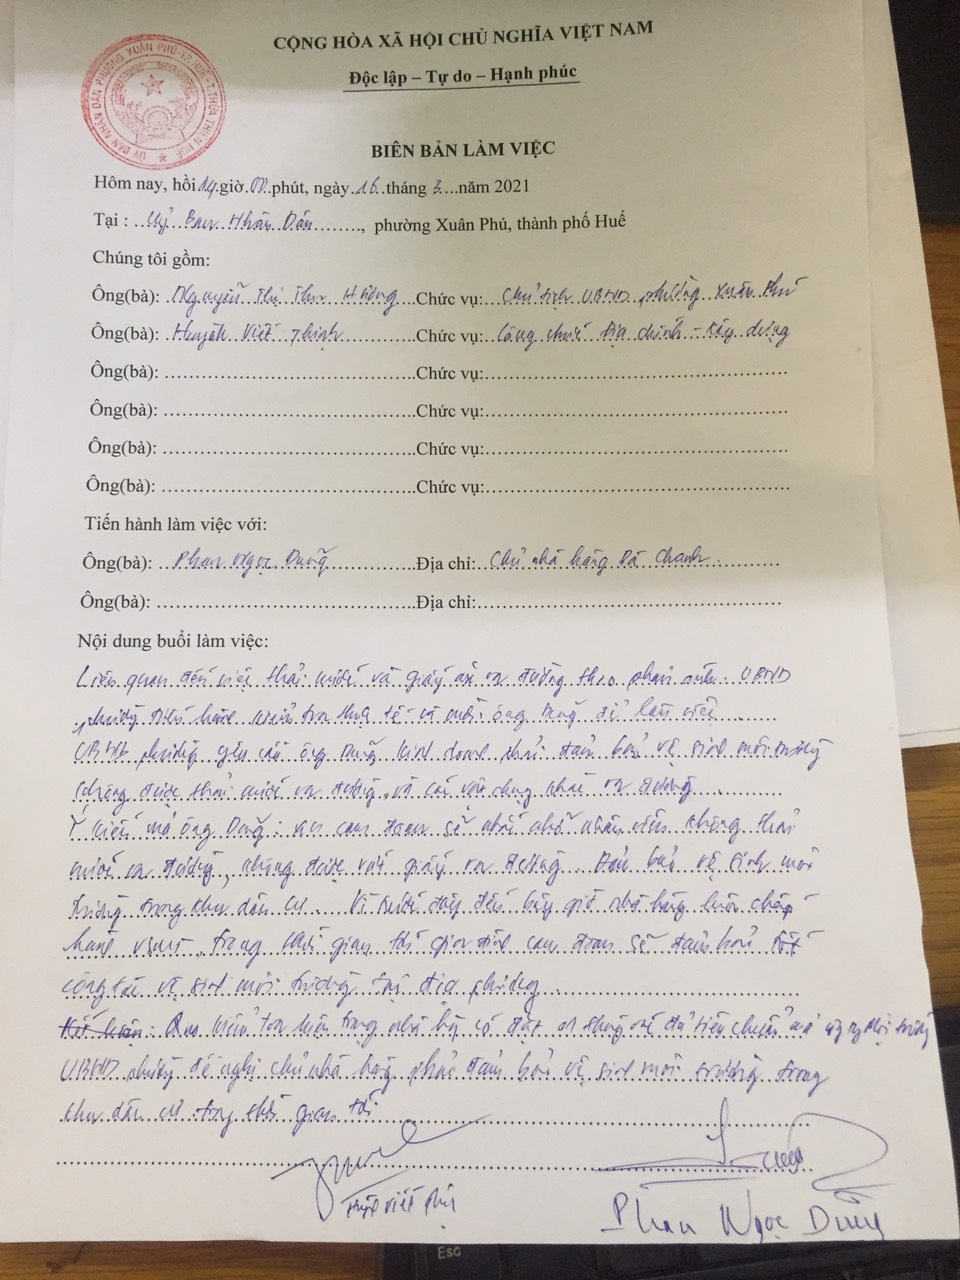 CỘNG HÒA XÃ HỘI CHỦ NGHĨA VIỆT NAM
Độc lập – Tự do – Hạnh phúc
ỦY BAN NHÂN DÂN PHƯỜNG XUÂN PHÚ-TP.HUẾ-T.THỪA THIÊN HUẾ
BIÊN BẢN LÀM VIỆC
Hôm nay, hồi 14 giờ 00 phút, ngày 16 tháng 3 năm 2021
Tại : Uỷ Ban Nhân Dân, phường Xuân Phú, thành phố Huế
Chúng tôi gồm:
Ông(bà): Nguyễn Thị Thu Hồng Chức vụ: Chủ tịch UBND phường Xuân Phú
Ông(bà): Huỳnh Viết Thịnh Chức vụ: Công chức Địa chính - Xây dựng
Ông(bà): Chức vụ:
Ông(bà): Chức vụ:
Ông(bà): Chức vụ:
Ông(bà): Chức vụ:
Tiến hành làm việc với:
Ông(bà): Phan Ngọc Dũng Địa chỉ: Chủ nhà hàng Dã Chanh
Ông(bà): Địa chỉ:
Nội dung buổi làm việc:
Liên quan đến việc thải nước và giấy ăn ra đường theo phản ánh. UBND
phường tiến hành kiểm tra thực tế và mời ông Dũng để làm việc
UBND phường yêu cầu ông Dũng kinh doanh phải đảm bảo vệ sinh môi trường
không được thải nước ra đường và
Ý kiến của ông Dũng: cam đoan sẽ nhắc nhở nhân viên không thải
nước ra đường, không được vứt giấy ra đường. Đảm bảo vệ sinh môi
trường trong khu dân cư. Vì trước đây đến bây giờ nhà hàng luôn chấp
hành, trong thời gian tới gia đình cam đoan sẽ đảm bảo tốt
công tác vệ sinh môi trường tại địa phương
Kết luận: Qua kiểm tra hiện trạng nhà hàng có đủ tiêu chuẩn
UBND phường đề nghị chủ nhà hàng phải đảm bảo vệ sinh môi trường trong
khu dân cư trong thời gian tới
Phan Ngọc Dũng
Esc